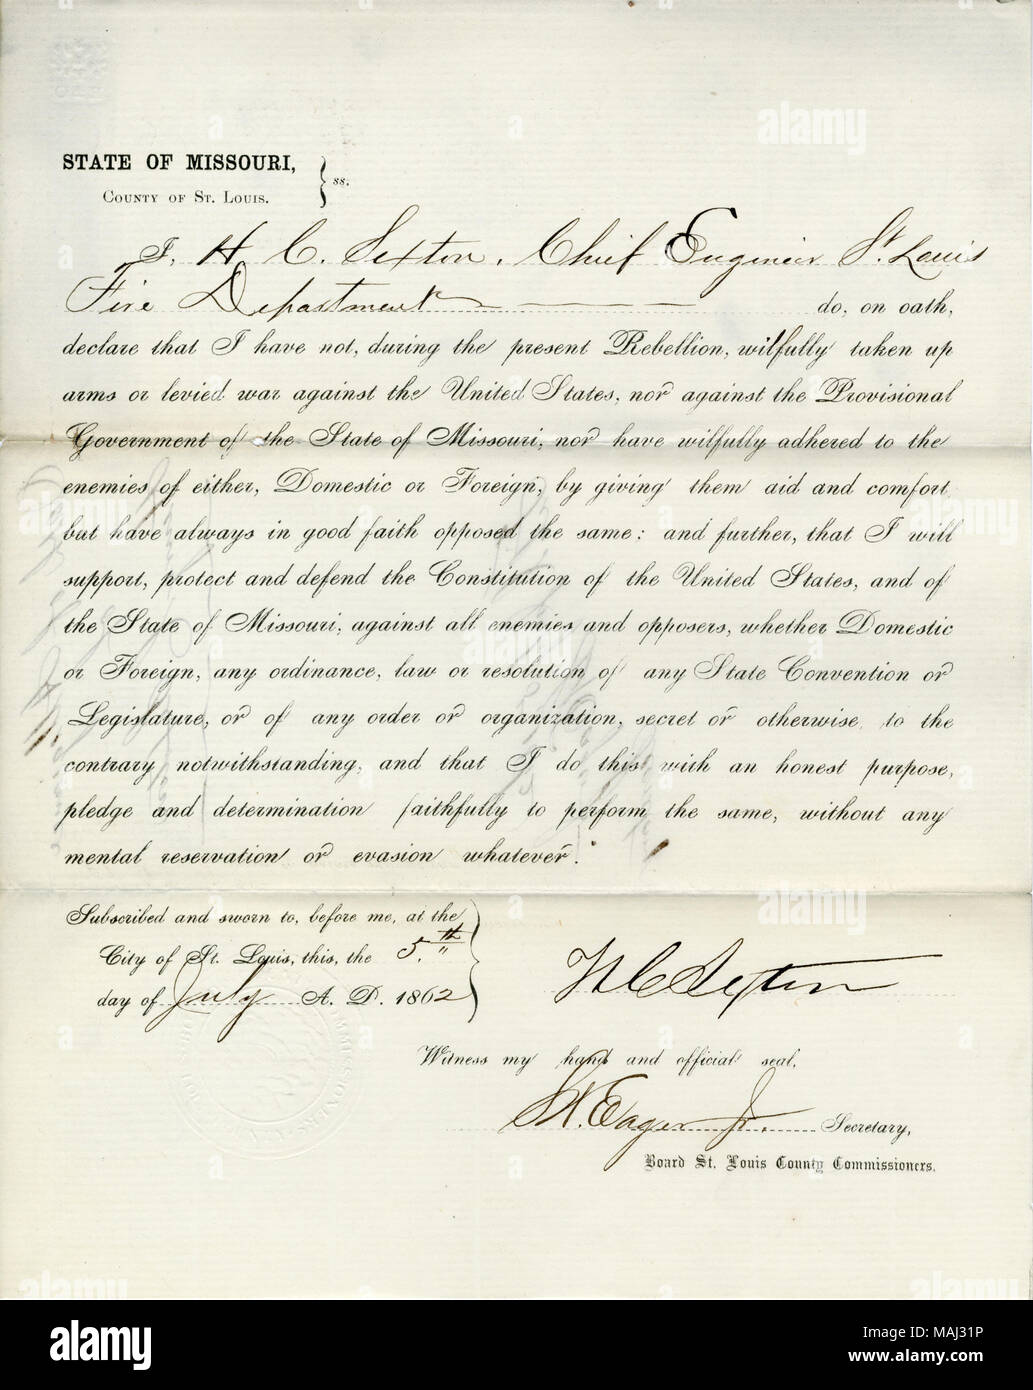 STATE OF MISSOURI,
COUNTY OF ST. LOUIS. } ss.
I, H. C. Sexton, Chief Engineer St. Louis
Fire Department do, on oath,
declare that I have not, during the present Rebellion, wilfully taken up
arms or levied war against the United States, nor against the Provisional
Government of the State of Missouri, nor have wilfully adhered to the
enemies of either, Domestic or Foreign, by giving them aid and comfort
but have always in good faith opposed the same: and further, that I will
support, protect and defend the Constitution of the United States, and of
the State of Missouri, against all enemies and opposers, whether Domestic
or Foreign, any ordinance, law or resolution of any State Convention or
Legislature, or of any order or organization, secret or otherwise, to the
contrary notwithstanding, and that I do this with an honest purpose,
pledge and determination faithfully to perform the same, without any
mental reservation or evasion whatever."
Subscribed and sworn to, before me, at the
City of St. Louis, this, the 5th
day of July A. D. 1862
H C Sexton
Witness my hand and official seal,
St. Eager Jr. Secretary,
Board St. Louis County Commissioners.
alamy
Image ID: MAJ31P
www.alamy.com